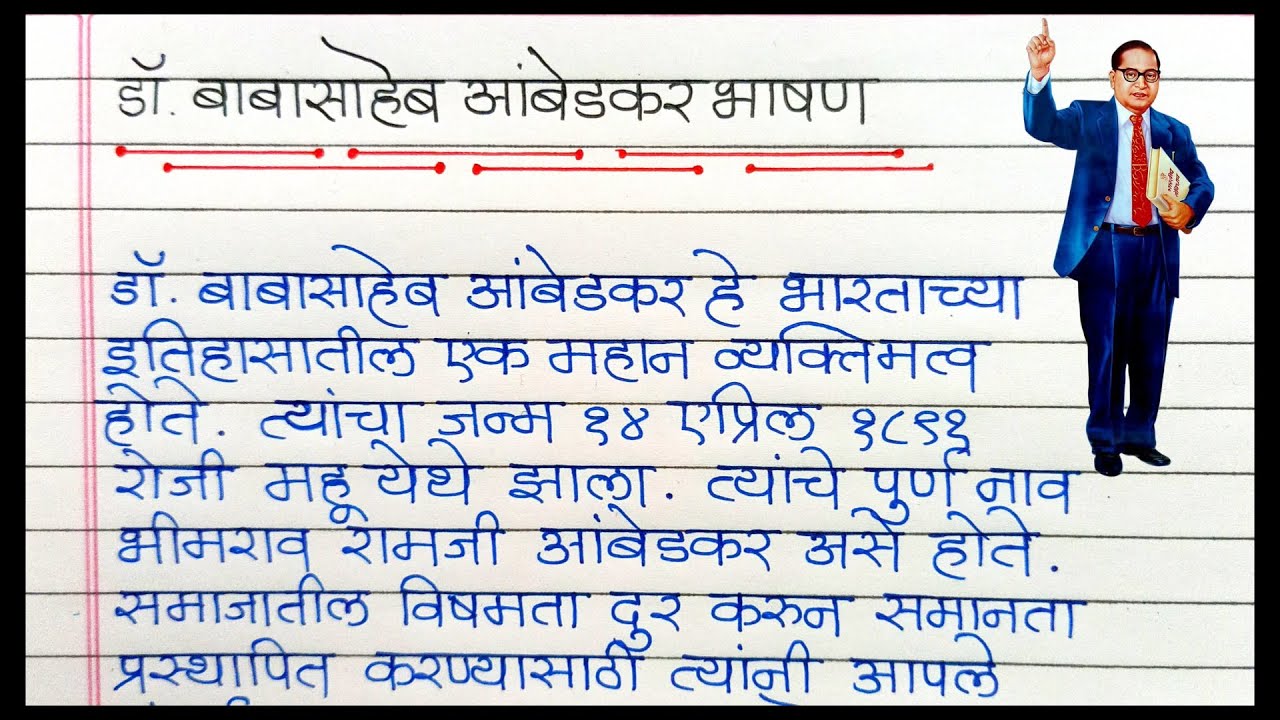 डॉ. बाबासाहेब आंबेडकर भाषण
डॉ. बाबासाहेब आंबेडकर हे भारताच्या
इतिहासातील एक महान व्यक्तिमत्व
होते. त्यांचा जन्म १४ एप्रिल १८९१
रोजी महू येथे झाला. त्यांचे पुर्ण नाव
भीमराव रामजी आंबेडकर असे होते.
समाजातील विषमता दुर करुन समानता
प्रस्थापित करण्यासाठी त्यांनी आपले